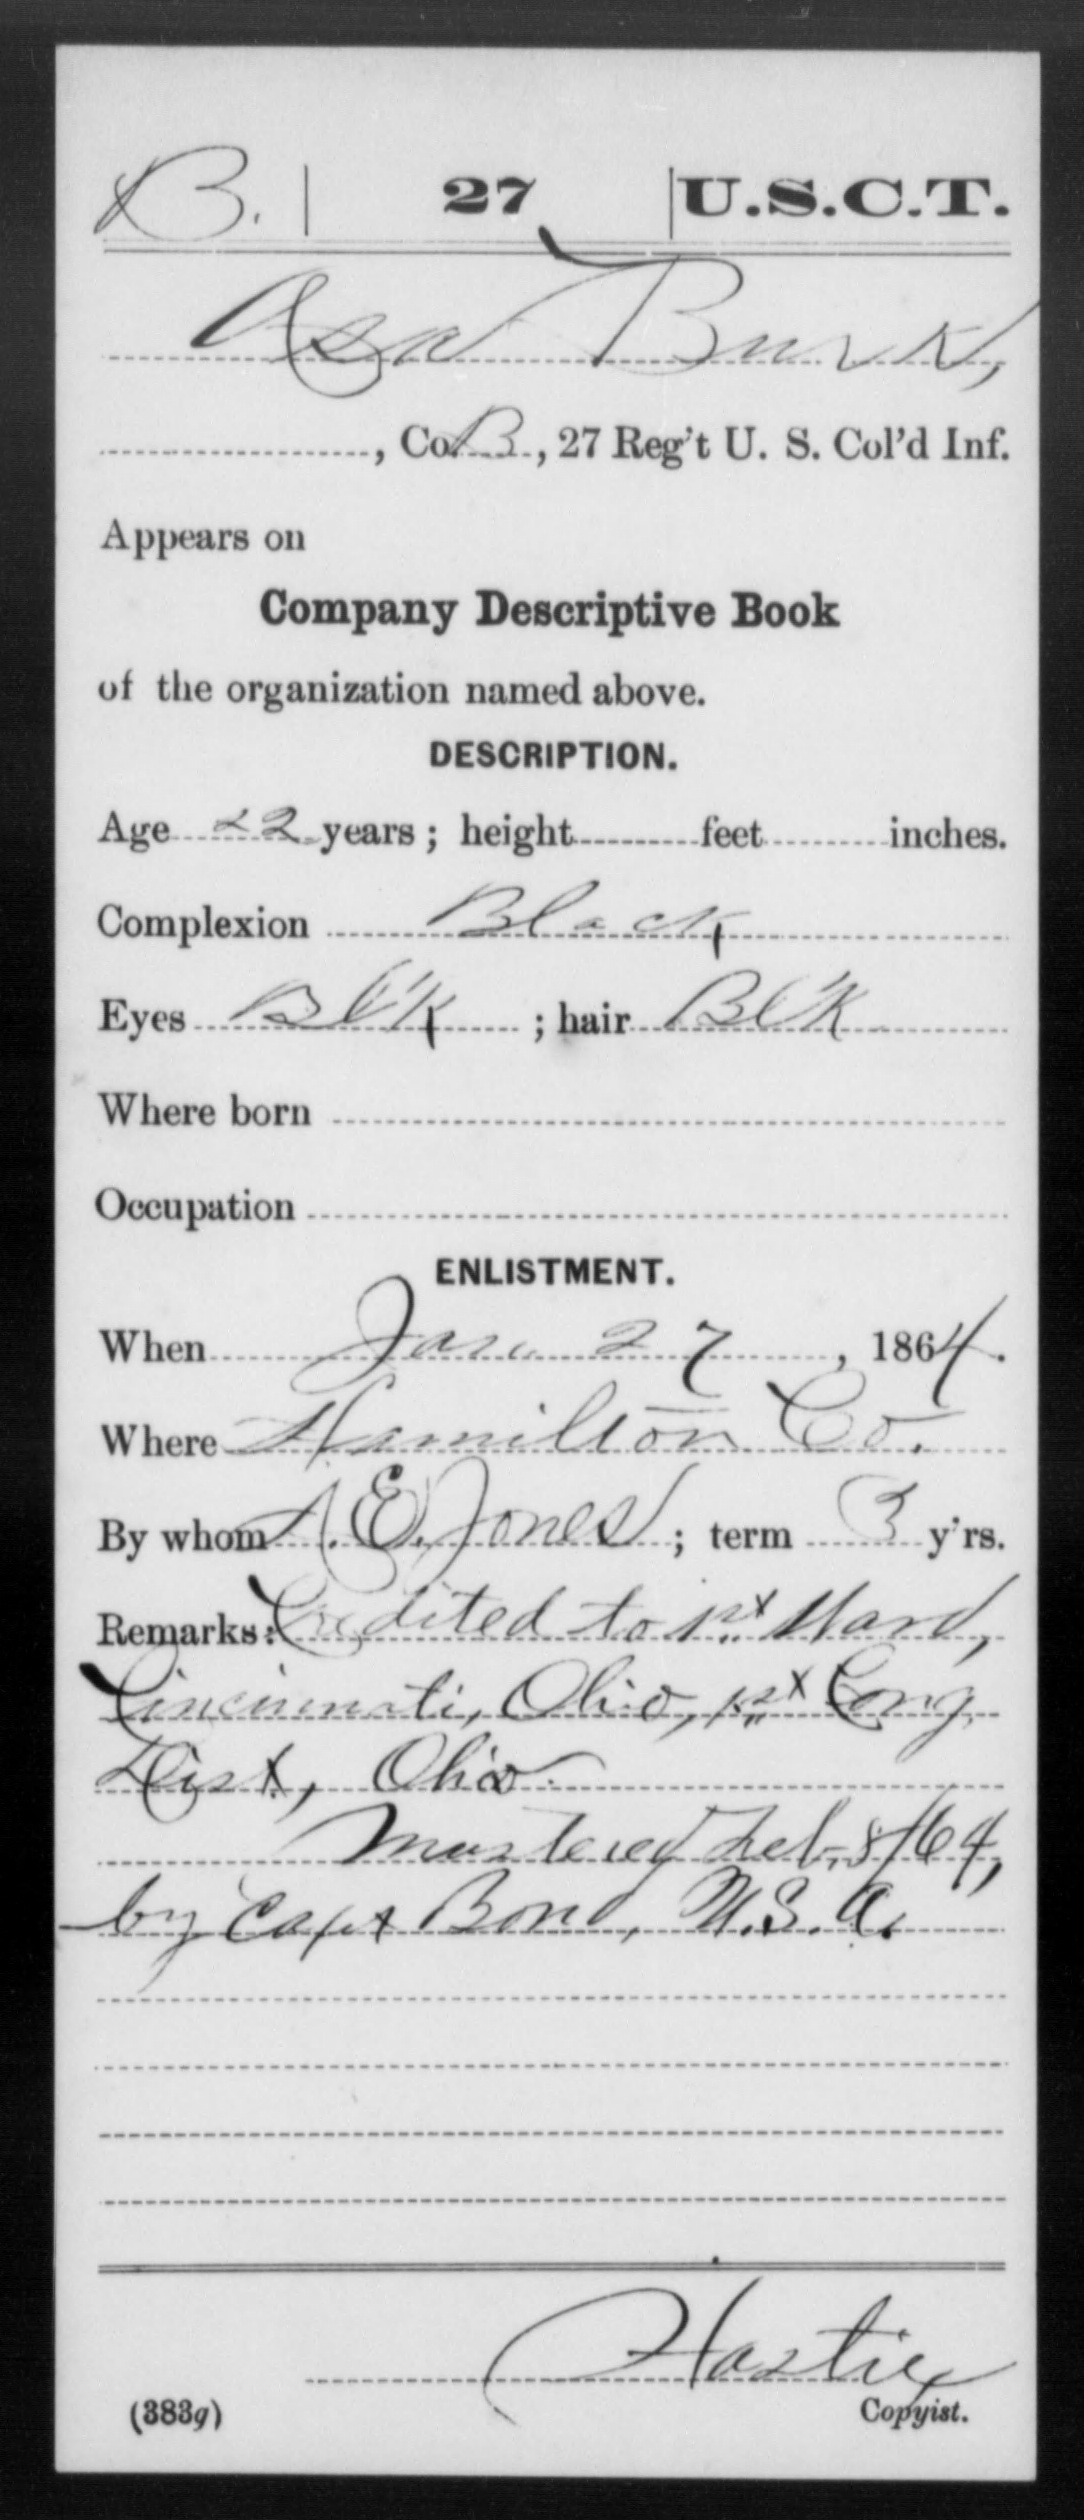 B. | 27 | U.S.C.T.
Asa Burk,
, Co. B., 27 Reg't U. S. Col'd Inf.
Appears on
Company Descriptive Book
of the organization named above.
DESCRIPTION.
Age 22 years; height feet inches.
Complexion Black
Eyes Bl'k ; hair Bl'k
Where born
Occupation
ENLISTMENT.
When Jan. 27, 1864.
Where Hamilton Co.
By whom A. E. Jones; term 3 y'rs.
Remarks: Credited to 1st Ward,
Cincinnati, Ohio, 1st Cong.
Dist, Ohio.
Mustered Feb. 8/64,
by Capt Bond, U.S.A.
Hastie
(383g) Copyist.